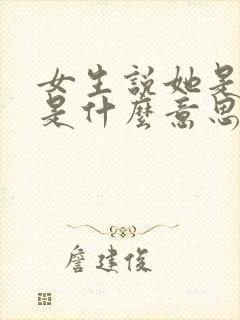 女生說她是
是什麼意思
詹建俊